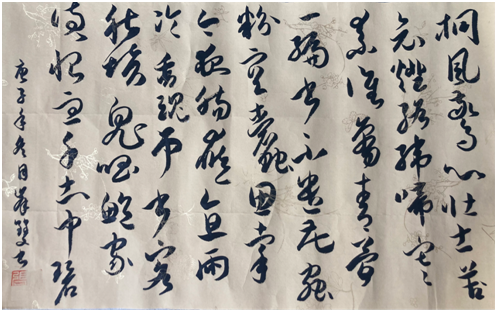 桐風驚心壯士苦
衰燈絡緯啼寒
素誰看青簡
一編書不遣花蟲
粉空蠹思牽
今夜腸應直雨
冷香魂吊書客
秋墳鬼唱鮑家
詩恨血千年土中碧
庚子年冬月